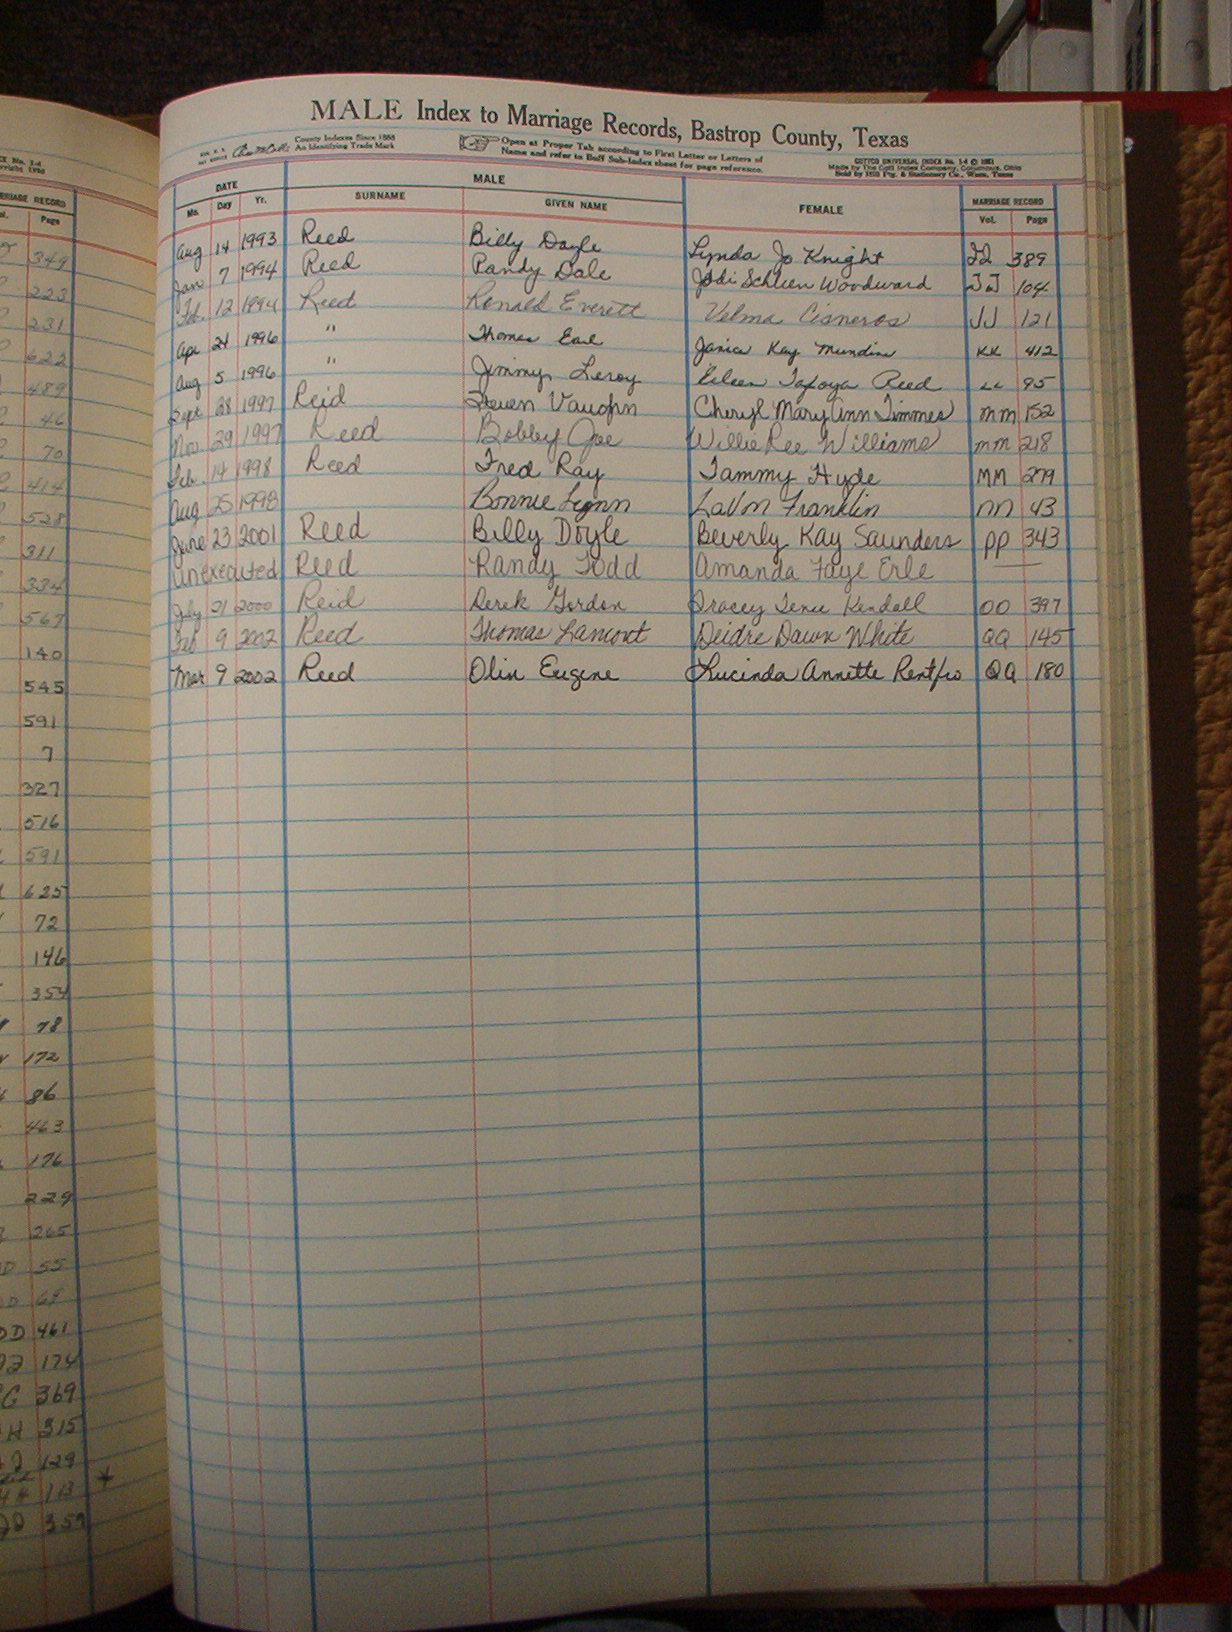 MALE Index to Marriage Records, Bastrop County, Texas
County Indexes Since 1888
An Identifying Trade Mark
Open at Proper Tab according to First Letter or Letters of
Name and refer to Buff Sub-Index sheet for page reference.
COTTCO UNIVERSAL INDEX No. 1-4 © 1981
Made by The Cott Index Company, Columbus, Ohio
DATE MALE FEMALE MARRIAGE RECORD
Mo. Day Yr. SURNAME GIVEN NAME Vol. Page
Aug 14 1993 Reed Billy Doyle Lynda Jo Knight 389
Jan 7 1994 Reed Randy Dale Jodi Schleen Woodward JJ 104
Feb. 12 1994 Reed Ronald Everett Velma Cisneros JJ 121
Apr 21 1996 " Thomas Earl Janice Kay Mundine KK 412
Aug 5 1996 " Jimmy Leroy Eileen Tafoya Reed LL 95
Sept 28 1997 Reid Steven Vaughn Cheryl Mary Ann Timmes mm 152
Nov 29 1997 Reed Bobby Joe Willie Ree Williams mm 218
Feb. 14 1998 Reed Fred Ray Tammy Hyde MM 279
Aug 25 1998 Bonnie Lynn LaVon Franklin nn 43
June 23 2001 Reed Billy Doyle Beverly Kay Saunders PP 343
Unexecuted Reed Randy Todd Amanda Faye Erle —
July 21 2000 Reid Derek Gordon Tracey Kendall OO 397
Feb 9 2002 Reed Thomas Lamont Deidre Dawn White QQ 145
Mar 9 2002 Reed Olin Eugene Lucinda Annette Rentfro QQ 180
MARRIAGE RECORD
Page
349
223
231
622
489
46
70
414
528
311
334
567
140
545
591
7
327
516
591
625
72
146
354
78
172
86
463
176
229
265
55
65
DD 461
174
G 369
H 315
129
H 113 *
359